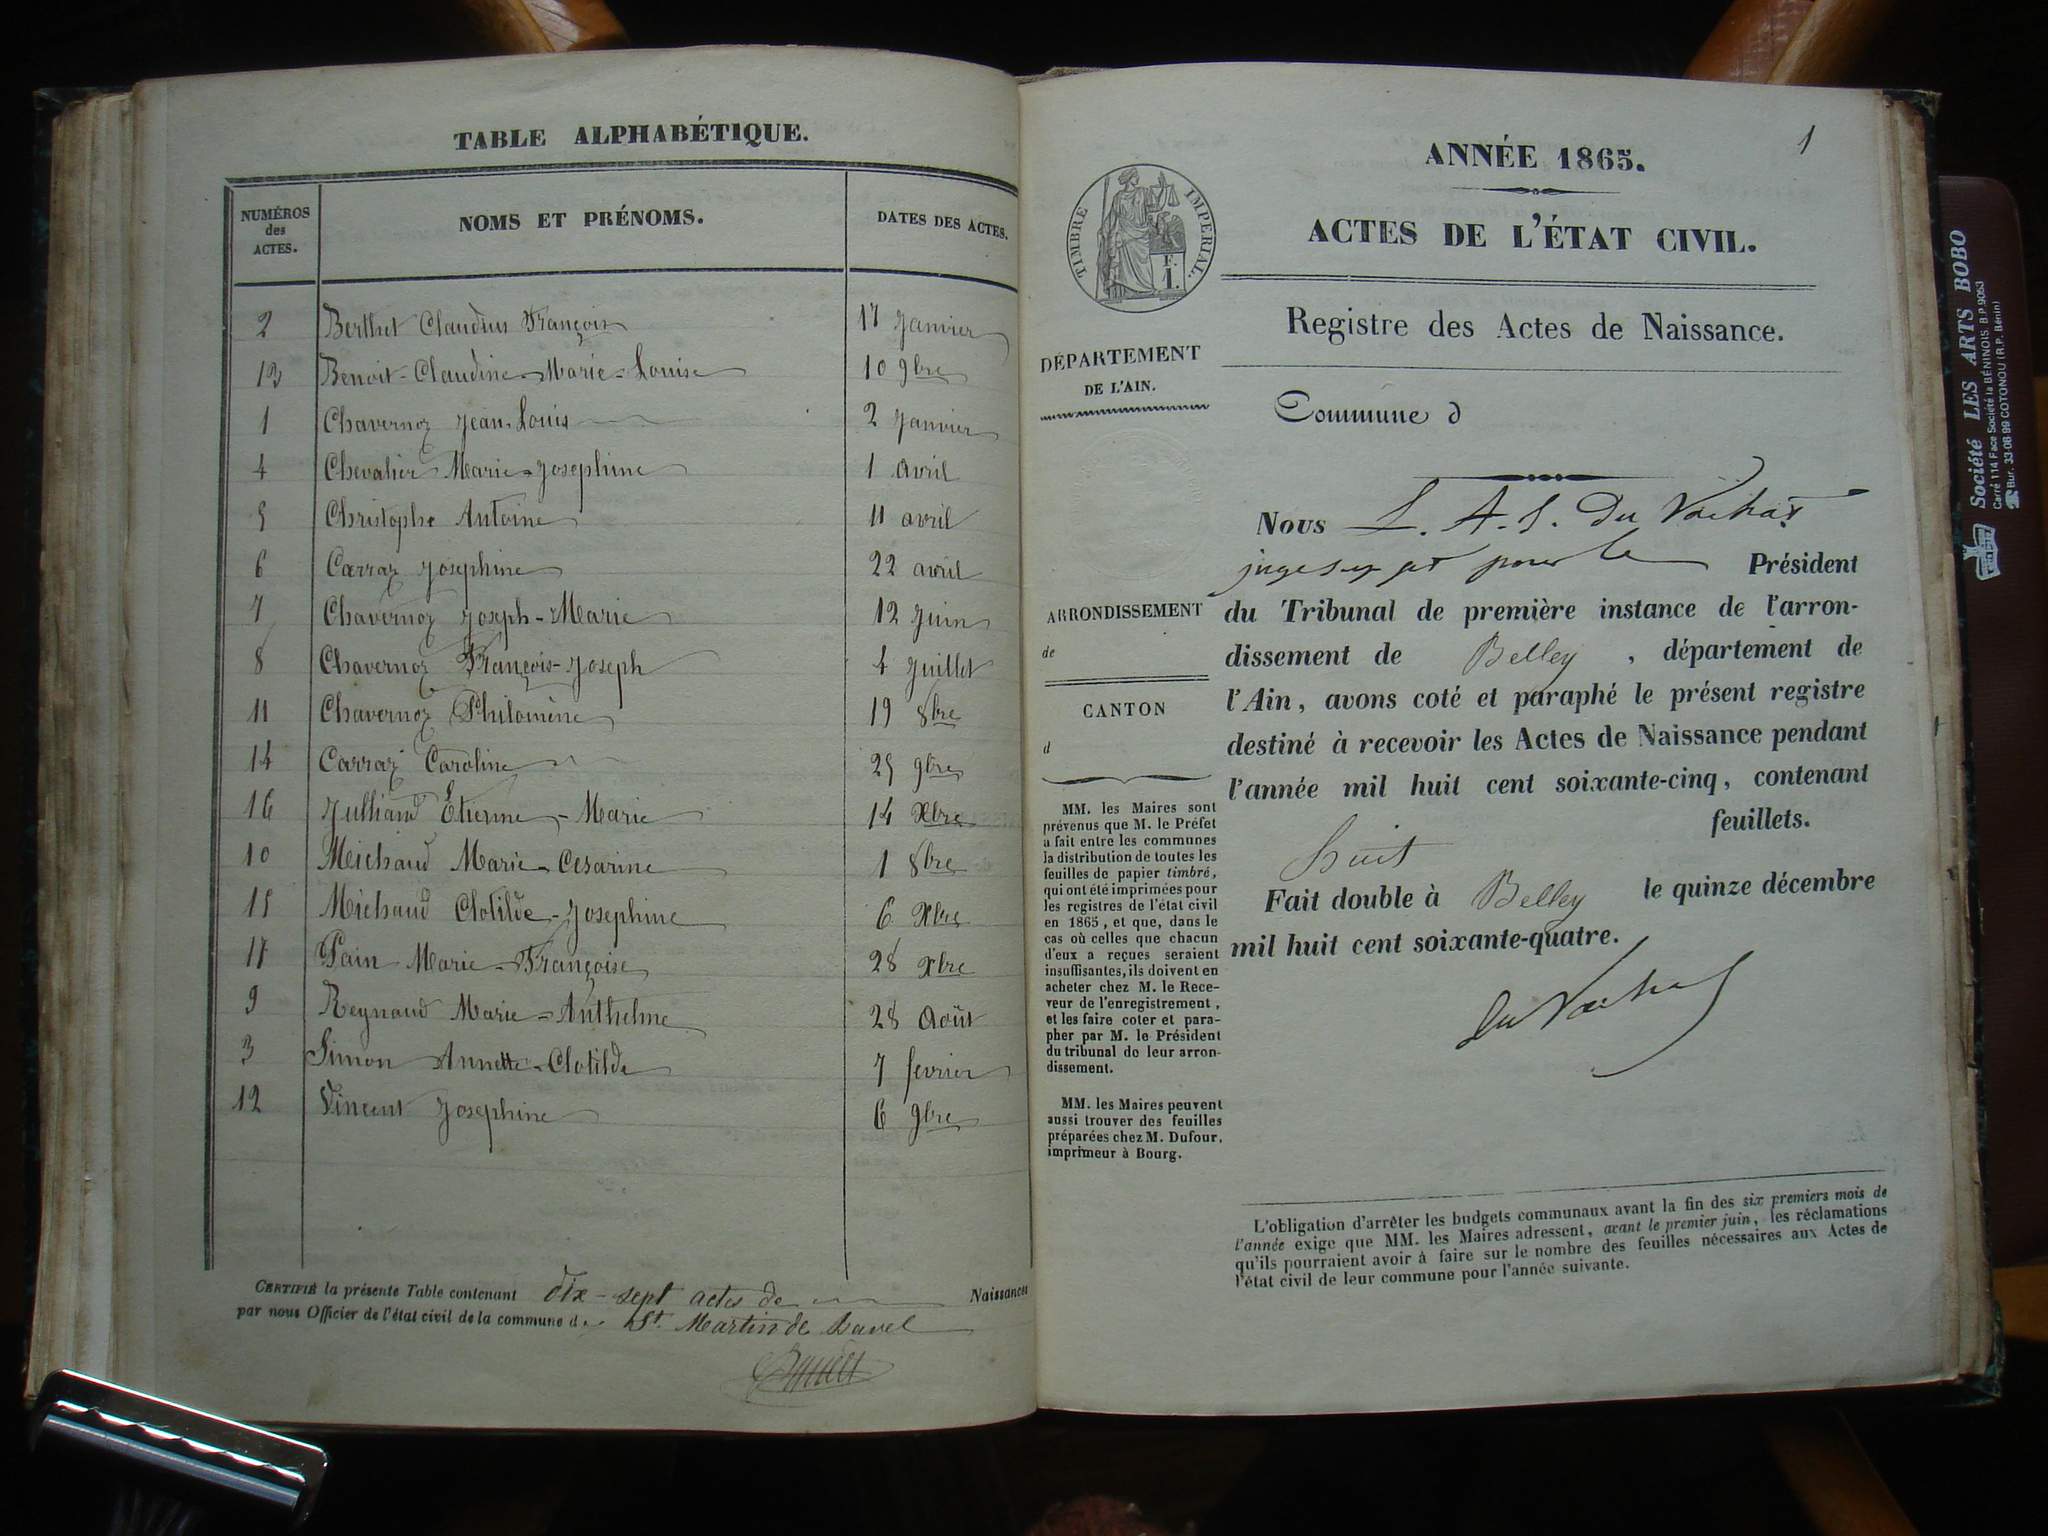 TABLE ALPHABÉTIQUE.
NUMÉROS des ACTES. NOMS ET PRÉNOMS. DATES DES ACTES.
2 Berthet Claudius François 17 Janvier
13 Benoit-Claudine-Marie-Louise 10 9bre
1 Chavernoz Jean-Louis 2 Janvier
4 Chevalier Marie-Josephine 1 avril
5 Christophe Antoine 11 avril
6 Carraz Josephine 22 avril
7 Chavernoz Joseph-Marie 12 Juin
8 Chavernoz François-Joseph 4 Juillet
11 Chavernoz Philomène 19 8bre
14 Carraz Caroline 25 9bre
16 Julliand Etienne-Marie 14 Xbre
10 Michaud Marie-Cesarine 1 8bre
15 Michaud Clotilde-Josephine 6 Xbre
17 Pain Marie-Françoise 28 Xbre
9 Reynaud Marie-Anthelme 28 Août
3 Simon Annette-Clotilde 7 fevrier
12 Vincent Josephine 6 9bre
CERTIFIÉ la présente Table contenant dix-sept actes de Naissances
par nous Officier de l'état civil de la commune de St. Martin de Bavel
1
ANNÉE 1865.
TIMBRE IMPÉRIAL.
F. 1.
ACTES DE L'ÉTAT CIVIL.
Registre des Actes de Naissance.
DÉPARTEMENT
DE L'AIN.
Commune d
ARRONDISSEMENT
de
CANTON
d
MM. les Maires sont
prévenus que M. le Préfet
a fait entre les communes
la distribution de toutes les
feuilles de papier timbré,
qui ont été imprimées pour
les registres de l'état civil
en 1865, et que, dans le
cas où celles que chacun
d'eux a reçues seraient
insuffisantes, ils doivent en
acheter chez M. le Rece-
veur de l'enregistrement,
et les faire coter et para-
pher par M. le Président
du tribunal de leur arron-
dissement.
MM. les Maires peuvent
aussi trouver des feuilles
préparées chez M. Dufour,
imprimeur à Bourg.
Nous L. A. S. Du Vachat
juge pour le Président
du Tribunal de première instance de l'arron-
dissement de Belley, département de
l'Ain, avons coté et paraphé le présent registre
destiné à recevoir les Actes de Naissance pendant
l'année mil huit cent soixante-cinq, contenant
huit feuillets.
Fait double à Belley le quinze décembre
mil huit cent soixante-quatre.
Du Vachat
L'obligation d'arrêter les budgets communaux avant la fin des six premiers mois de
l'année exige que MM. les Maires adressent, avant le premier juin, les réclamations
qu'ils pourraient avoir à faire sur le nombre des feuilles nécessaires aux Actes de
l'état civil de leur commune pour l'année suivante.
Société LES ARTS BOBO
Carré 114 Face Société la BÉNINOIS B.P. 9053
Bur. 33-08 99 COTONOU (R.P. Bénin)